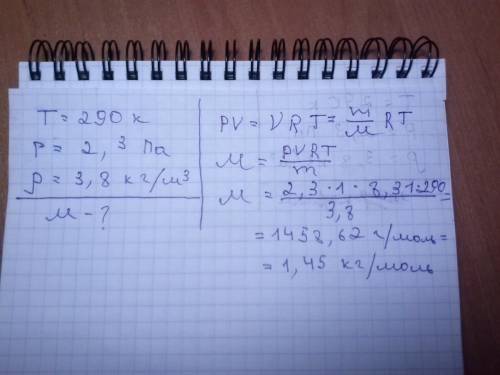 T = 290 к
P = 2, 3 Па
ρ = 3,8 кг/м³
M - ?
PV = νRT = m/M RT
M = PVRT/m
M = 2,3 · 1 · 8,31 · 290/3,8 =
= 1458,62 г/моль =
= 1,45 кг/моль